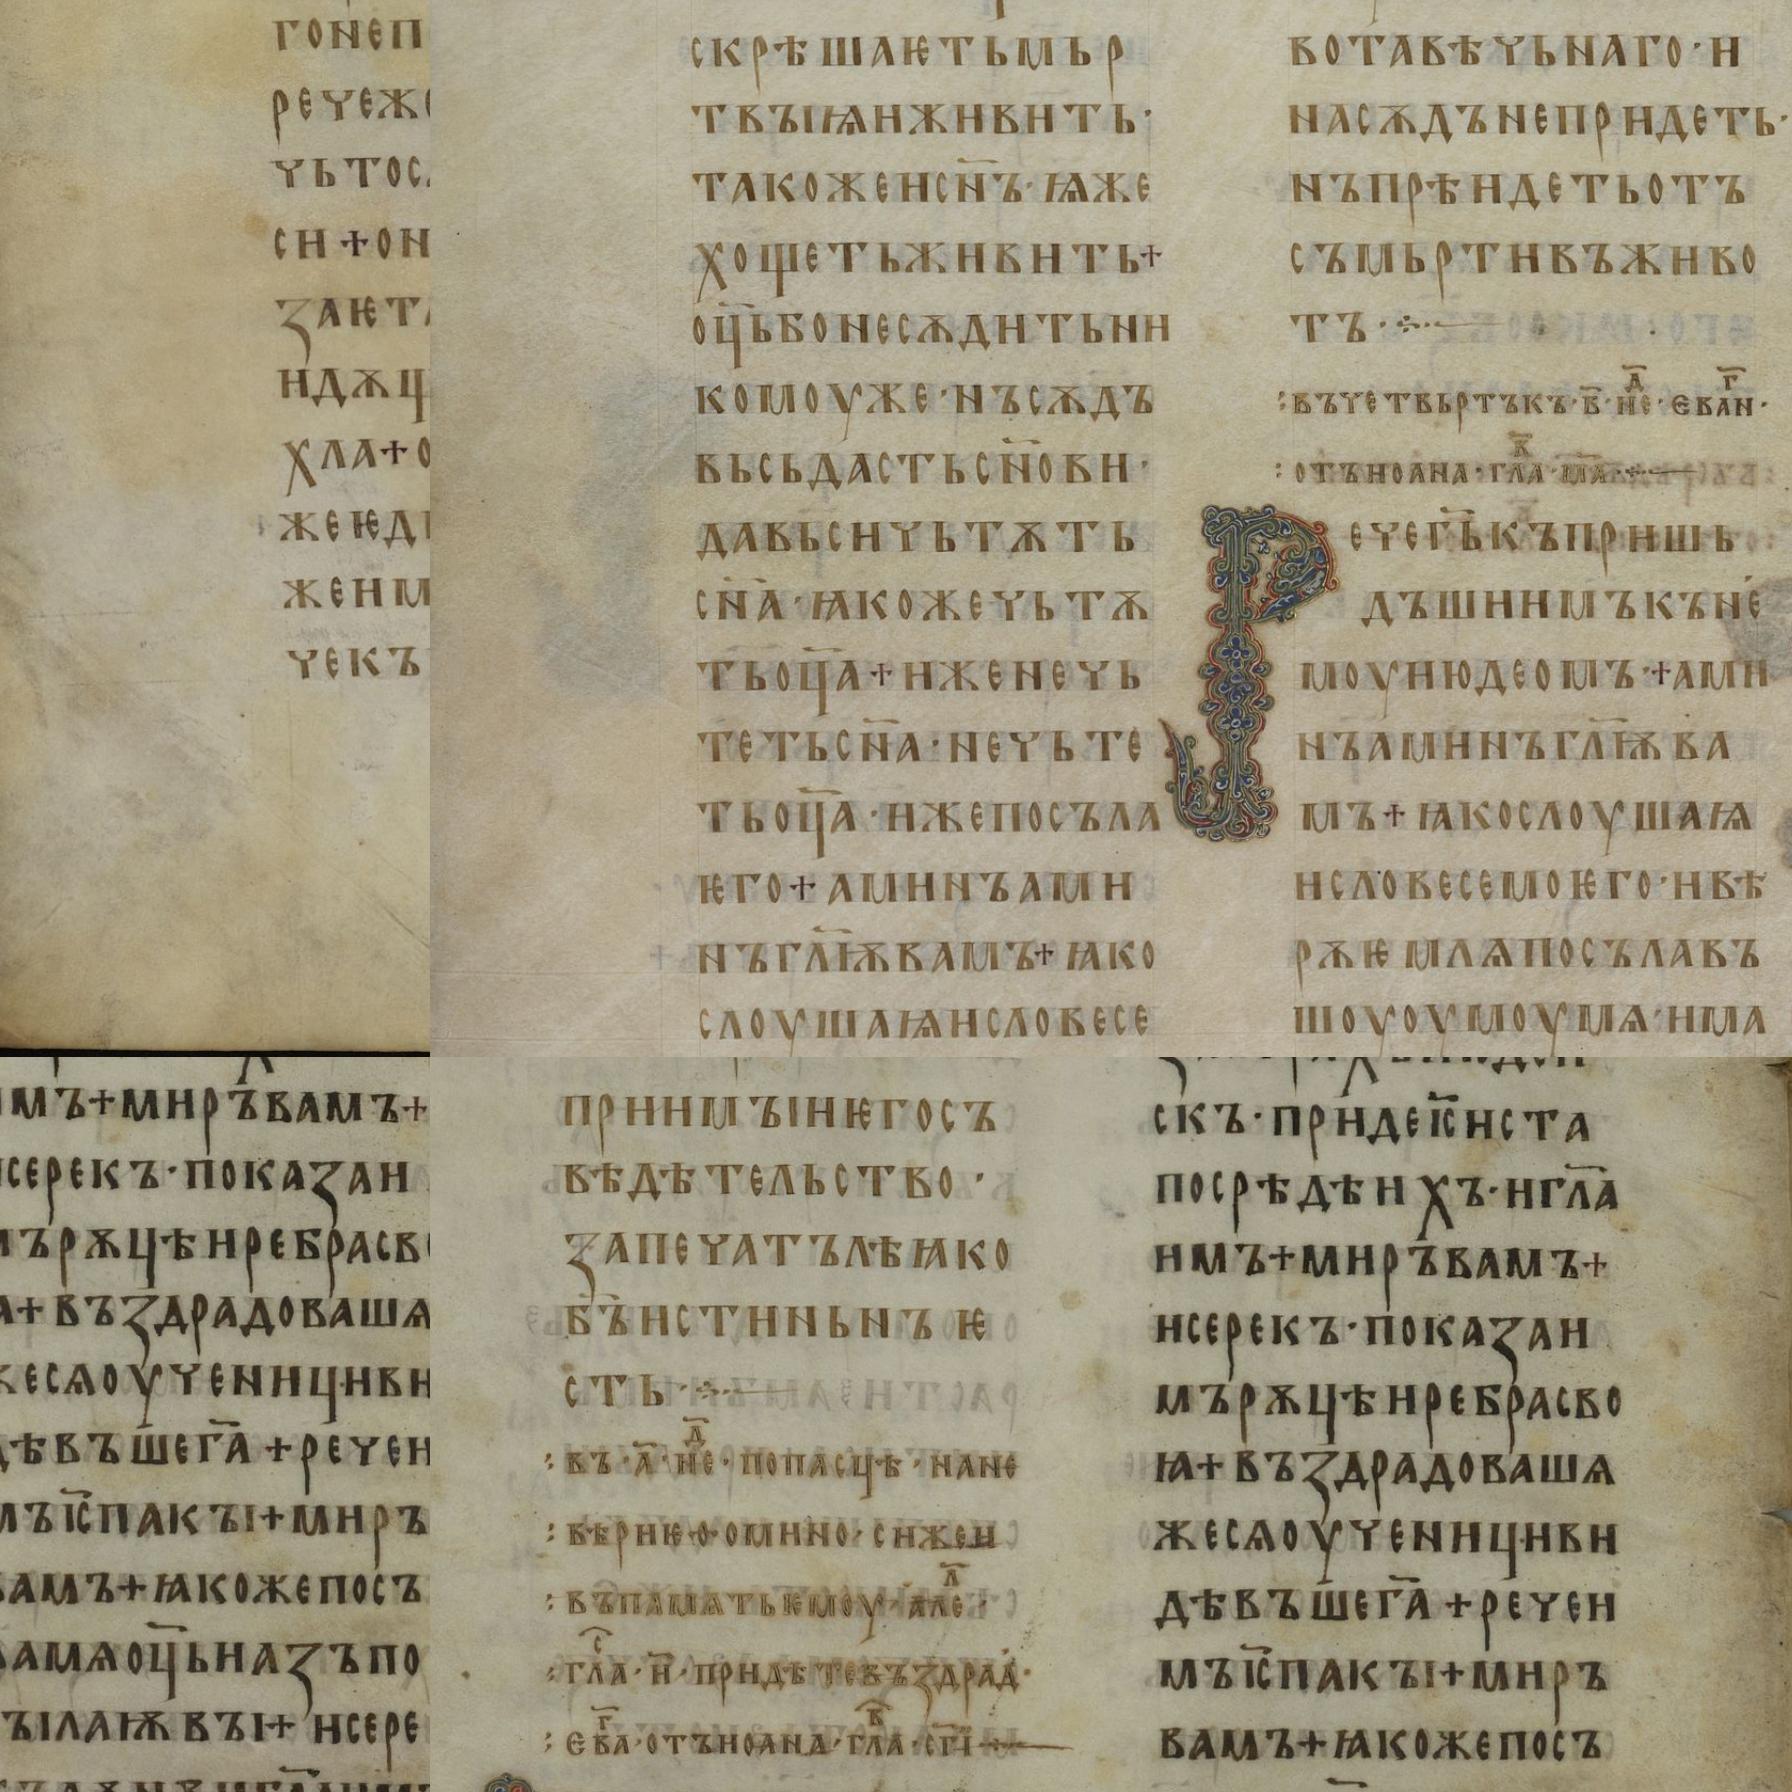 гонеп
речеж
чьтос
си+он
заѥт
идѫц
хла+о
жеѥд
жеим
чекъ
скрѣшаѥтьмьр
твꙑѩиживить·
такожеисн҃ъ·ꙗже
хощетьживить+
оц҃ьбонесѫдитьни
комоуже·нъсѫдъ
вьсьдастьсн҃ови·
давьсичьтѫть
сн҃а·ꙗкожечьтѫ
тьоц҃а+иженечь
тетьсн҃а·нечьте
тьоц҃а·ижепосъла
ѥго+аминъами
нъгл҃ѭвамъ+ꙗко
слоушаꙗисловесе
вотавѣчьнаго·и
насѫдънепридеть·
нъпрѣидетьотъ
съмьртивъживо
тъ·
:въчетвьртъкъ·б҃·не҃д·еван҃г·
:отъиоана·гла҃в·м҃а·
Речег҃ькъпришь
дъшиимъкън҃е
моуиюдеомъ·+ами
нъаминъгл҃ѭва
мъ+ꙗкослоушаꙗ
исловесемоѥго·ивѣ
рѫѥмлѧпосълавъ
шоуоумоумѧ·има
имъ+миръвамъ+
исерекъ·показаи
мърѫцѣиребрасв
а+въздрадовашѧ
жесѧоученициви
дѣвъшег҃а+речеи
мъıс҃пакꙑ+миръ
вамъ+ꙗкожепосъ
ламѧоц҃ьиазъпо
сꙑлаѭвꙑ+исере
приимꙑиѥгосъ
вѣдѣтельство·
запечатълѣꙗко
б҃ъистиньнъѥ
сть·
:въ·а҃·не҃д·попасцѣ·нане
:вѣриѥ·о·омино·сижеи
:въпамѧтьѥмоу·але҃л·
:гла҃с·и҃·придѣтевъздрад·
:ева҃г·отъиоана·гла҃в·сг҃і
скъ·придеıс҃иста
посрѣдѣихъ·игл҃а
имъ+миръвамъ+
исерекъ·показаи
мърѫцѣиребрасво
ꙗ+въздрадовашѧ
жесѧоученициви
дѣвъшег҃а+речеи
мъıс҃пакꙑ+миръ
вамъ+ꙗкожепосъ